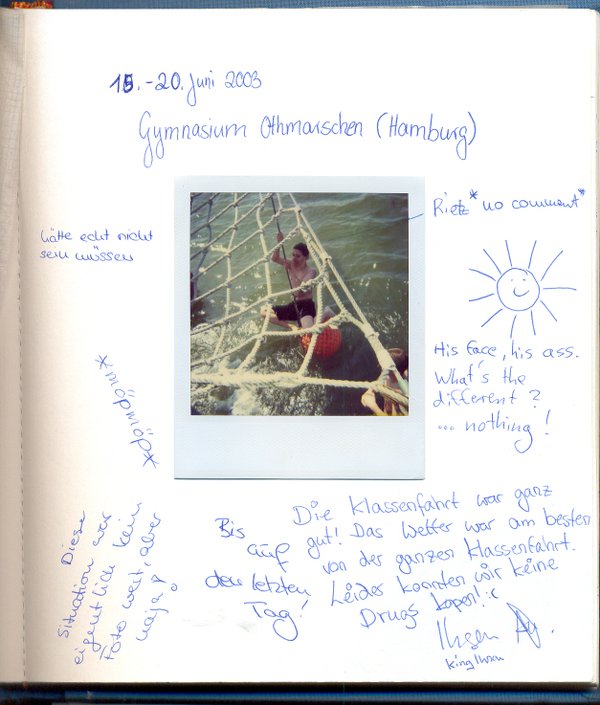 15.-20. Juni 2003
Gymnasium Othmarschen (Hamburg)
Rietz *no comment*
hätte echt nicht
sein müssen
His face, his ass.
What's the
different?
... nothing!
*möpmöpmöp*
Diese
Situation war
eigentlich kein
Foto wert, aber
naja!
Die Klassenfahrt war ganz
gut! Das Wetter war am besten
von der ganzen Klassenfahrt.
Leider konnten wir keine
Drugs kopen! :(
Bis
auf
den letzten
Tag!